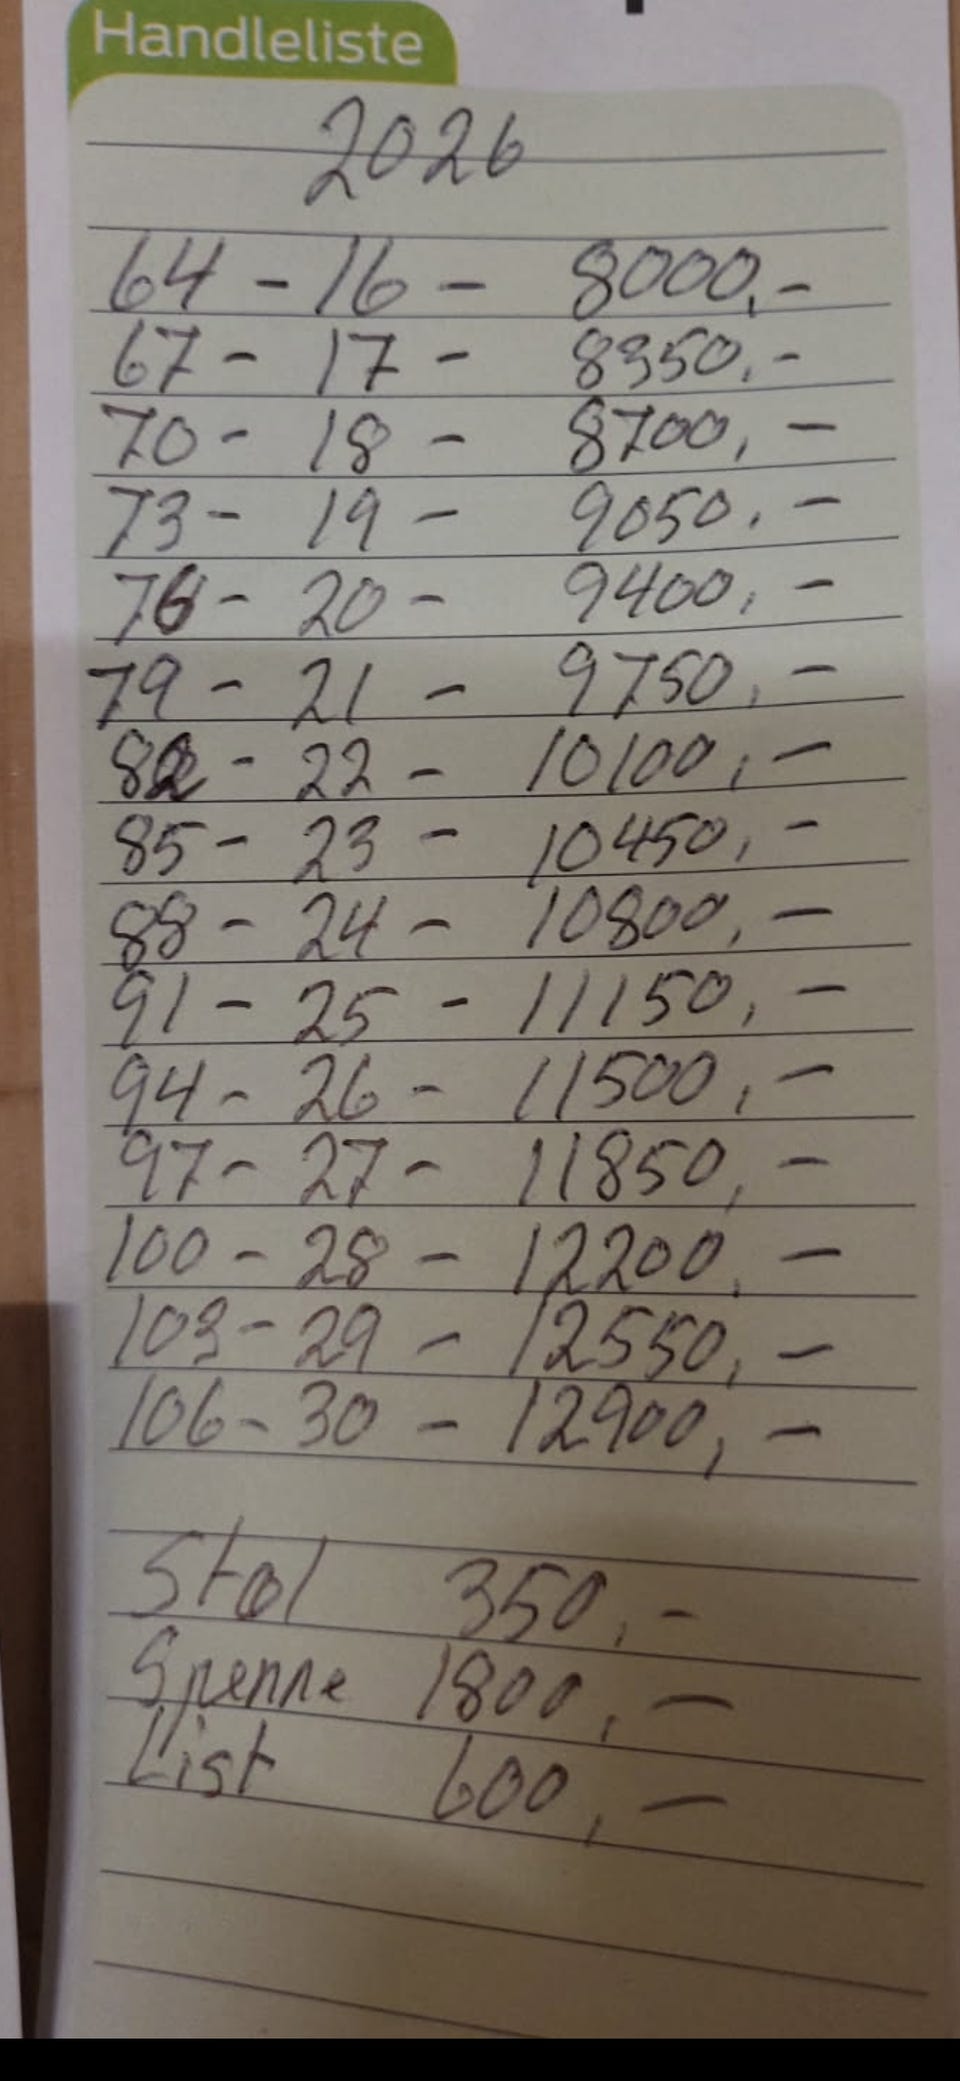 Handleliste
2026
64 - 16 - 8000,-
67 - 17 - 8350,-
70 - 18 - 8700,-
73 - 19 - 9050,-
76 - 20 - 9400,-
79 - 21 - 9750,-
82 - 22 - 10100,-
85 - 23 - 10450,-
88 - 24 - 10800,-
91 - 25 - 11150,-
94 - 26 - 11500,-
97 - 27 - 11850,-
100 - 28 - 12200,-
103 - 29 - 12550,-
106 - 30 - 12900,-
Støl 350,-
Spenne 1800,-
List 600,-